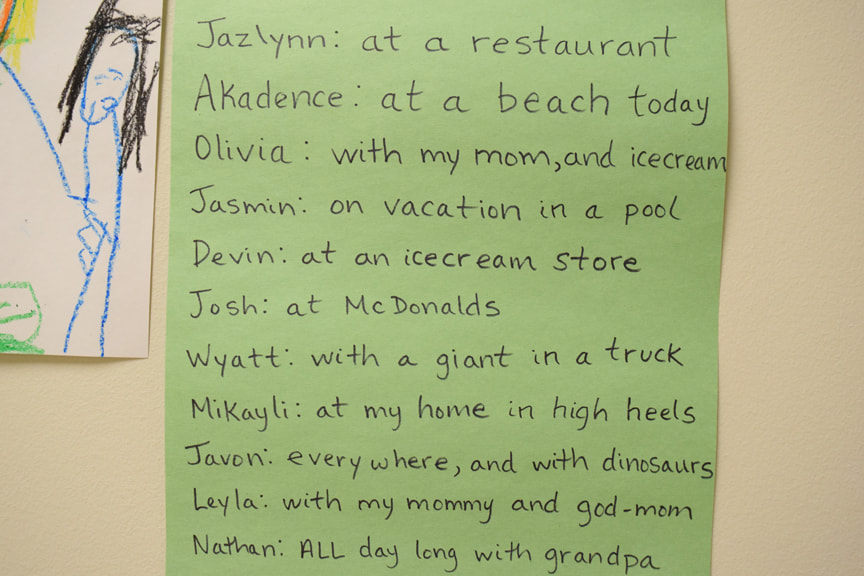 Jazlynn: at a restaurant
Akadence: at a beach today
Olivia: with my mom, and icecream
Jasmin: on vacation in a pool
Devin: at an icecream store
Josh: at McDonalds
Wyatt: with a giant in a truck
Mikayli: at my home in high heels
Javon: everywhere, and with dinosaurs
Leyla: with my mommy and god-mom
Nathan: ALL day long with grandpa